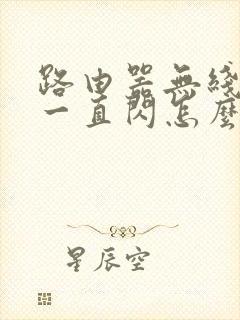 路由器無綫
一直閃怎麽
星辰空